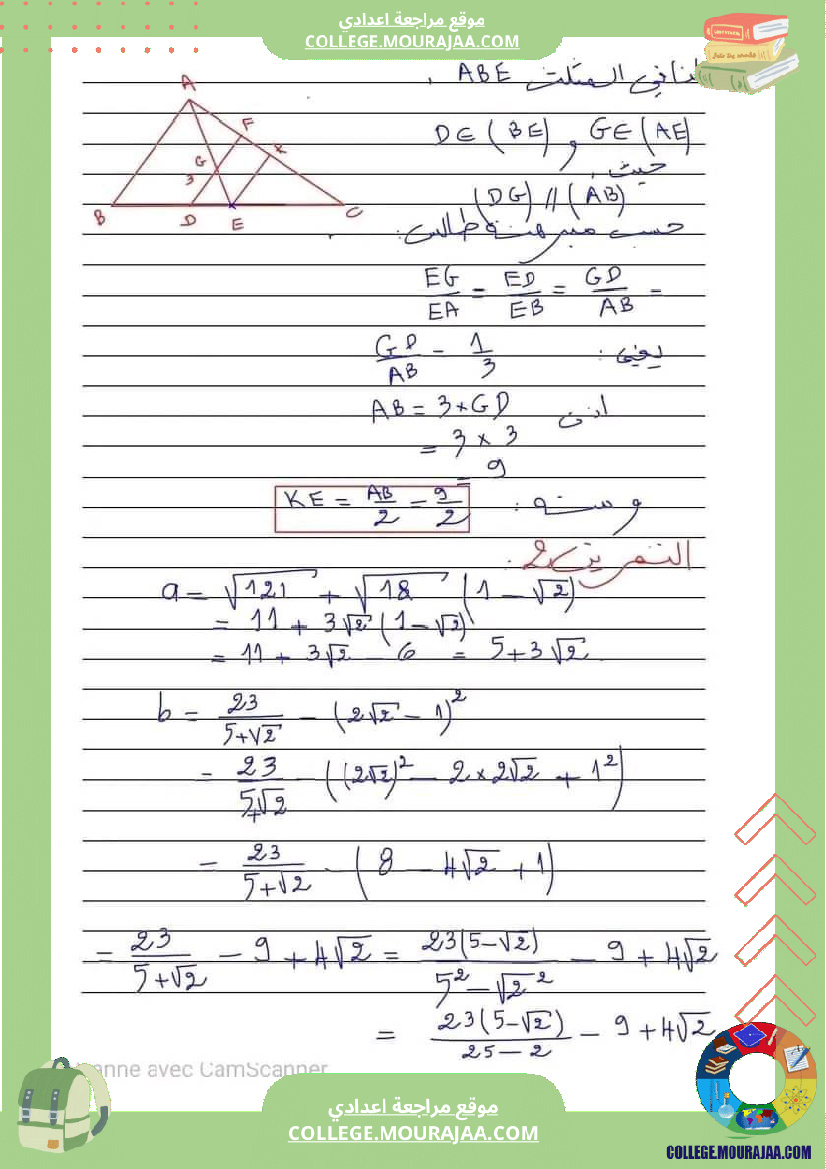 موقع مراجعة اعدادي
COLLEGE.MOURAJAA.COM
لنا في المثلث ABE
A
F
K
G
3
B
D
E
C
D∈(BE) و G∈(AE)
حيث
(DG)//(AB)
حسب مبرهنة طاليس:
EG/EA = ED/EB = GD/AB =
يعني: GD/AB = 1/3
اذن AB = 3×GD
= 3 × 3
= 9
ومنه: KE = AB/2 = 9/2
التمرين 2:
a = √121 + √18 (1 - √2)
= 11 + 3√2 (1 - √2)
= 11 + 3√2 - 6 = 5+3√2
b = 23/(5+√2) - (2√2 - 1)²
= 23/(5+√2) - ((2√2)² - 2×2√2 + 1²)
= 23/(5+√2) - (8 - 4√2 + 1)
= 23/(5+√2) - 9 + 4√2 = 23(5-√2)/(5² - √2²) - 9 + 4√2
= 23(5-√2)/(25-2) - 9 + 4√2
anne avec CamScanner
موقع مراجعة اعدادي
COLLEGE.MOURAJAA.COM
COLLEGE.MOURAJAA.COM